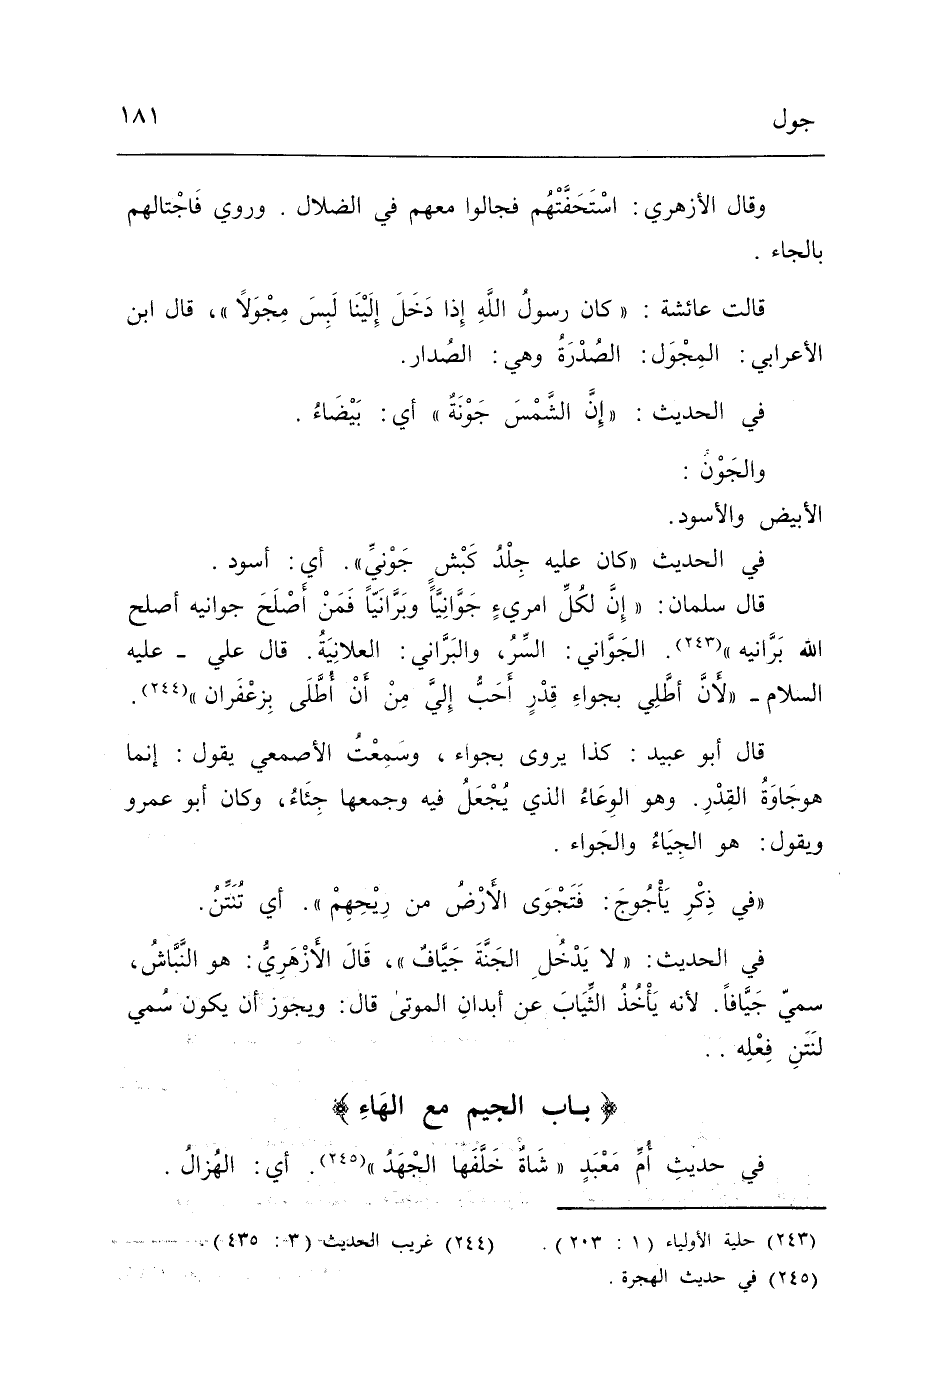 جول ١٨١
وقال الأزهري: اسْتَخَفَّتْهُم فجالوا معهم في الضلال . وروي فَاجْتالهم
بالجاء .
قالت عائشة : « كان رسولُ اللَّهِ إذا دَخَلَ إلَيْنَا لَبِسَ مِجْوَلاً »، قال ابن
الأعرابي: المِجْوَل: الصُدْرَةُ وهي: الصُدار.
في الحديث : «إنَّ الشَّمْسَ جَوْنَةٌ» أي: بَيْضَاءُ .
والجَوْنُ :
الأبيض والأسود.
في الحديث «كان عليه جِلْدُ كَبْشٍ جَوْنيِّ». أي: أسود .
قال سلمان: « إنَّ لكُلِّ امريءٍ جَوَّانِيَّاً وبَرَّانَيّاً فَمَنْ أَصْلَحَ جوانيه أصلح
الله بَرَّانيه »(٢٤٣). الجَوَّاني: السِّرُ، والبَرَّاني: العلانِيَةُ. قال علي - عليه
السلام - «لأَنَّ أطَّلِي بجواءِ قِدْرٍ أَحَبُّ إلَيَّ مِنْ أَنْ أُطَّلَى بِزعْفَران »(٢٤٤).
قال أبو عبيد : كذا يروى بجواء ، وسَمِعْتُ الأصمعي يقول : إنما
هوجَاوَةُ القِدْرِ. وهو الوِعَاءُ الذي يُجْعَلُ فيه وجمعها جِئَاءُ، وكان أبو عمرو
ويقول: هو الجِيَاءُ والجَواء .
«في ذِكْرِ يَأْجُوجَ: فَتَجْوَى الأَرْضُ من رِيْحِهِمْ ». أي تُنَتِّنُ.
في الحديث: « لا يَدْخُلِ الجَنَّةَ جَيَّافٌ »، قَالَ الأَزْهَرِيُّ: هو النَّبَّاشُ،
سميّ جَيَّافاً. لأنه يَأْخُذُ الثِّيَابَ عن أبدانِ الموتىٰ قال: ويجوز أن يكون سُمي
لنَتَنِ فِعْلِه . .
﴿ بـاب الجيم مع الهَاءِ ﴾
في حديثِ أُمِّ مَعْبَدٍ « شَاةٌ خَلَّفَها الجْهَدُ »(٢٤٥). أي: الهُزالُ .
(٢٤٣) حلية الأولياء ( ١ : ٢٠٣ ) . (٢٤٤) غريب الحديث ( ٣ : ٤٣٥ ) .
(٢٤٥) في حديث الهجرة .